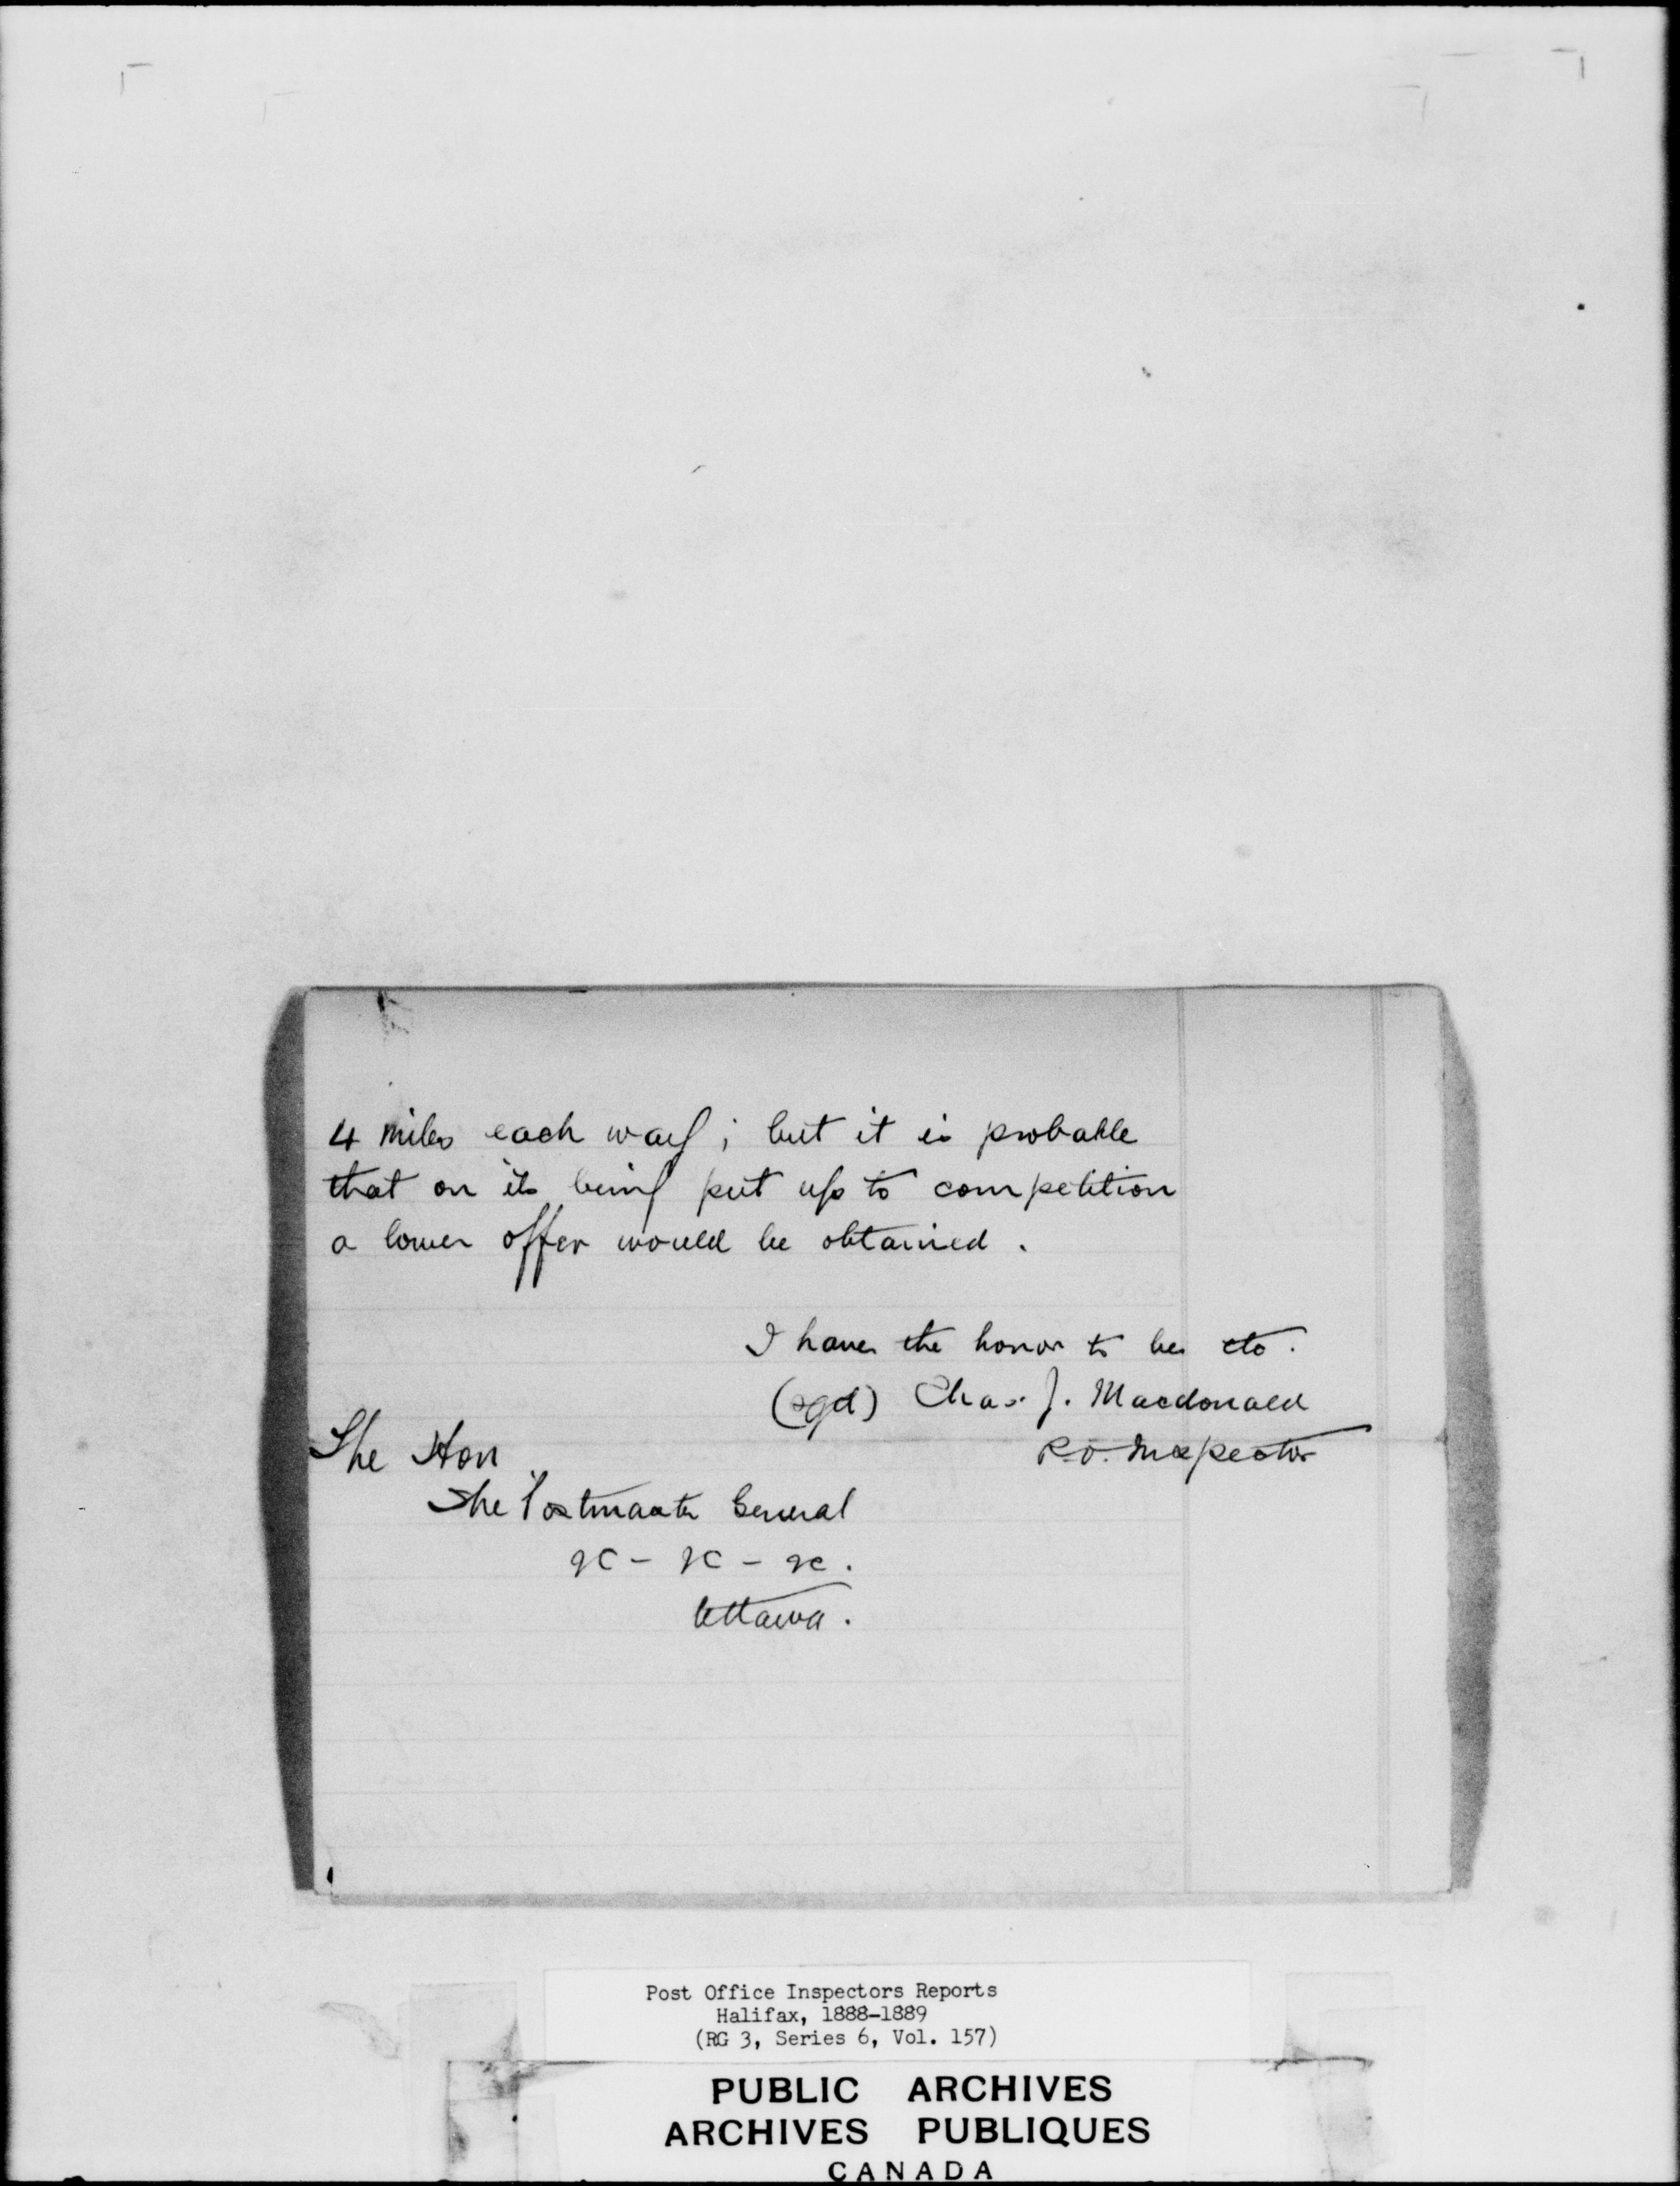 4 miles each way; but it is probable
that on its being put up to competition
a lower offer would be obtained.
I have the honor to be etc.
(sgd) Chas. J. Macdonald
P.O. Inspector
The Hon
The Postmaster General
&c - &c - &c.
Ottawa.
Post Office Inspectors Reports
Halifax, 1888-1889
(RG 3, Series 6, Vol. 157)
PUBLIC ARCHIVES
ARCHIVES PUBLIQUES
CANADA